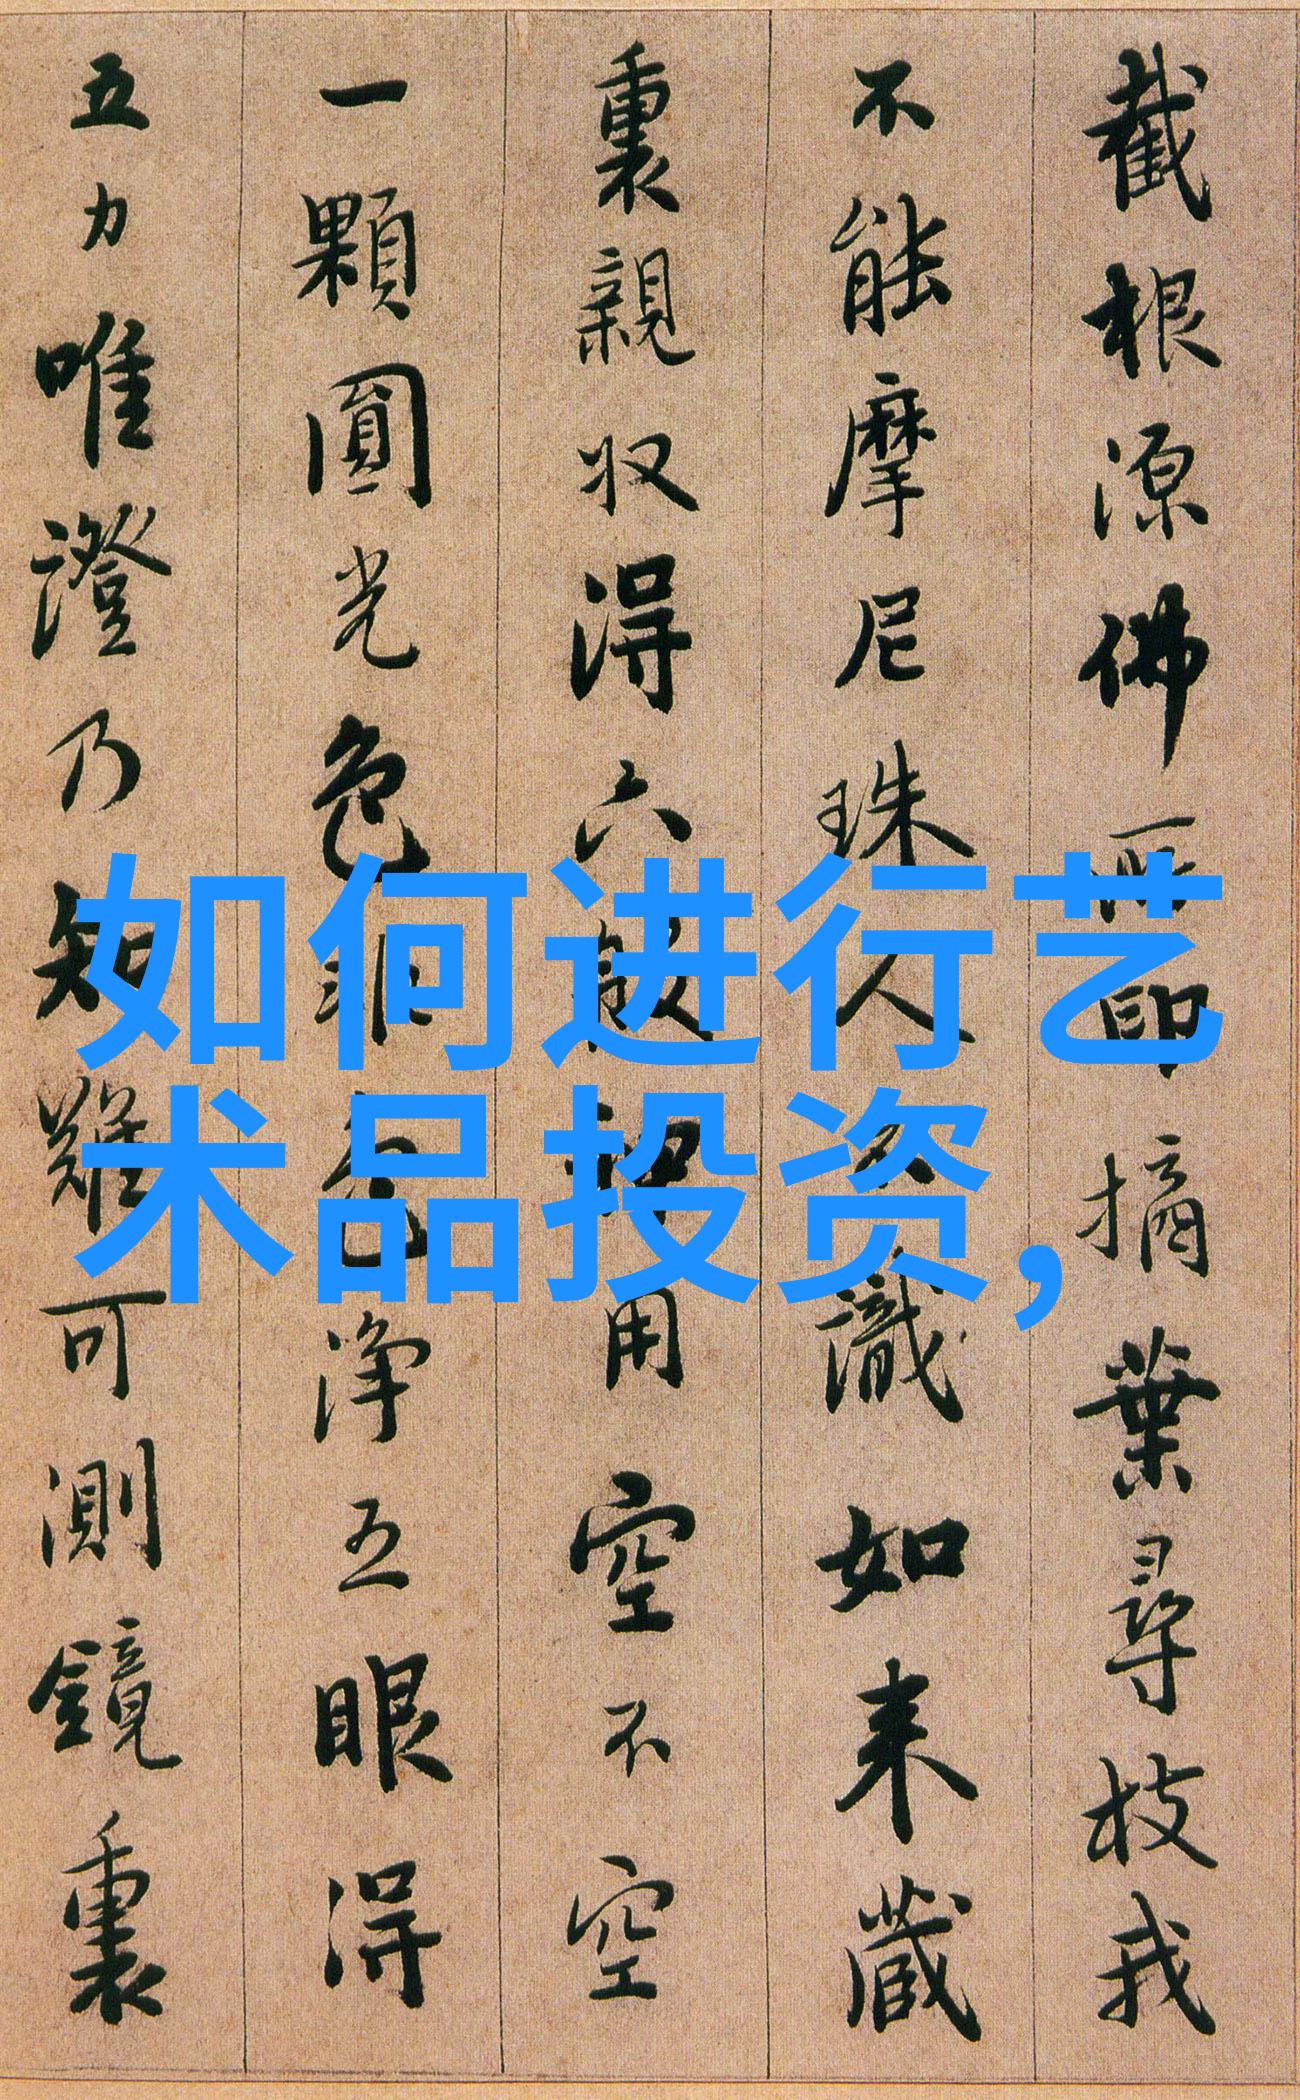 截根源佛所印摘葉尋枝我
不能摩尼珠人不識如来藏
裏親収得六般神用空不空
一顆圓光色非色淨五眼得
五力唯證乃知難可測鏡裏
如何进行艺
术品投资，